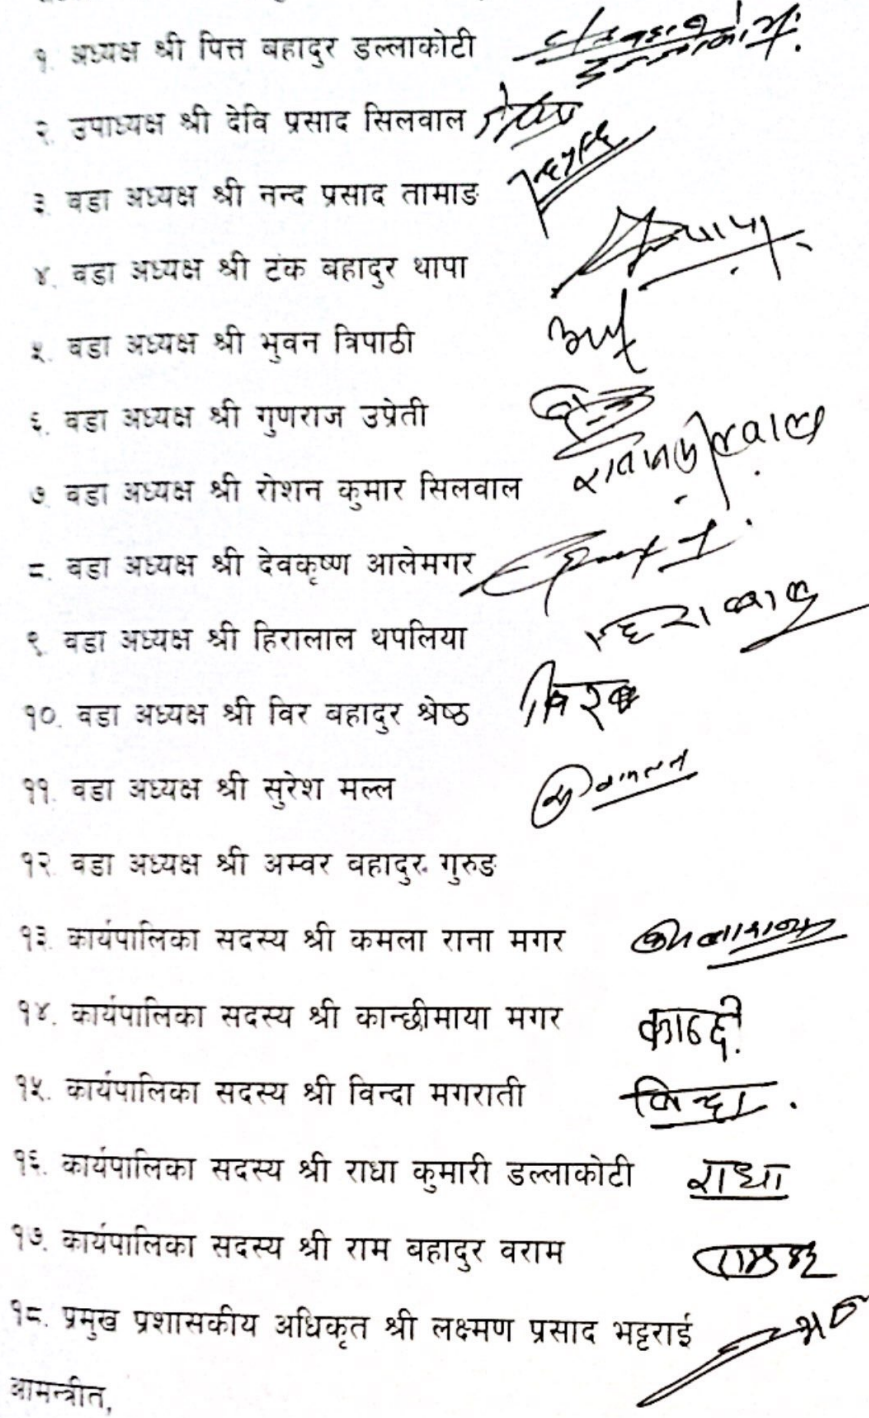 १. अध्यक्ष श्री पित्त बहादुर डल्लाकोटी
२. उपाध्यक्ष श्री देवि प्रसाद सिलवाल
३. वडा अध्यक्ष श्री नन्द प्रसाद तामाङ
४. वडा अध्यक्ष श्री टंक बहादुर थापा
५. वडा अध्यक्ष श्री भुवन त्रिपाठी
६. वडा अध्यक्ष श्री गुणराज उप्रेती
७. वडा अध्यक्ष श्री रोशन कुमार सिलवाल
८. वडा अध्यक्ष श्री देवकृष्ण आलेमगर
९. वडा अध्यक्ष श्री हिरालाल थपलिया
१०. वडा अध्यक्ष श्री विर बहादुर श्रेष्ठ
११. वडा अध्यक्ष श्री सुरेश मल्ल
१२. वडा अध्यक्ष श्री अम्वर वहादुर गुरुङ
१३. कार्यपालिका सदस्य श्री कमला राना मगर
१४. कार्यपालिका सदस्य श्री कान्छीमाया मगर कान्छी
१५. कार्यपालिका सदस्य श्री विन्दा मगराती बिन्दा
१६. कार्यपालिका सदस्य श्री राधा कुमारी डल्लाकोटी राधा
१७. कार्यपालिका सदस्य श्री राम बहादुर वराम
१८. प्रमुख प्रशासकीय अधिकृत श्री लक्ष्मण प्रसाद भट्टराई
आमन्त्रीत,